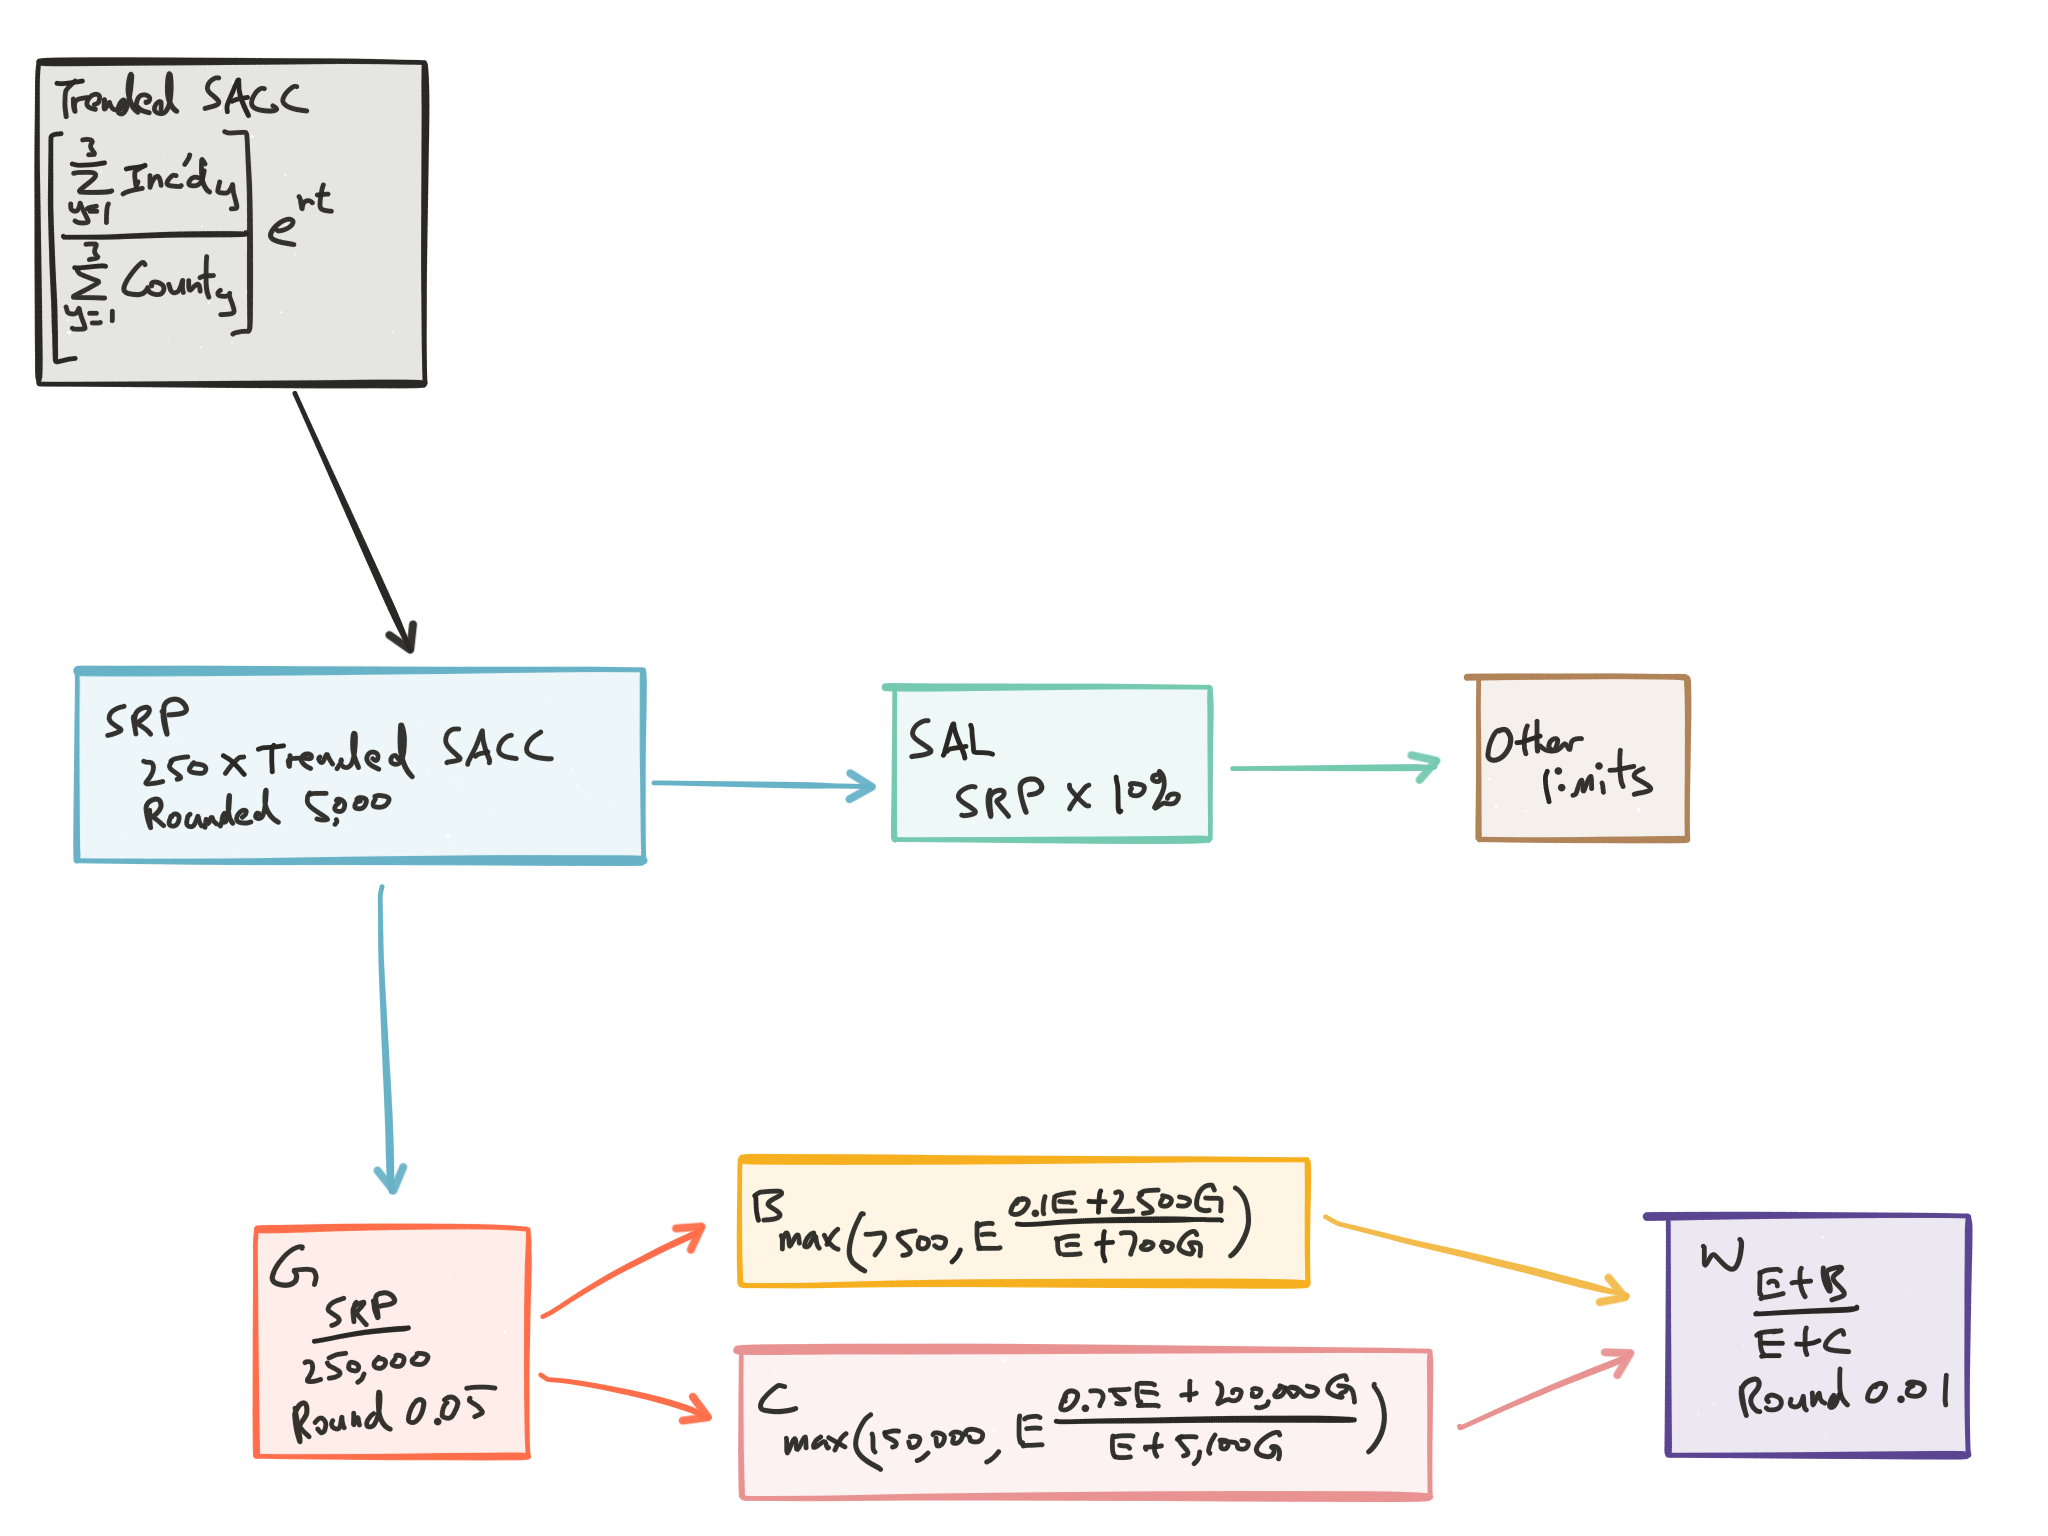 Trended SACC
[ 3
∑ Inc'd_y
y=1
3
∑ Count_y
y=1 ] e^rt
SRP
250 x Trended SACC
Rounded 5,000
SAL
SRP x 10%
Other
limits
G
SRP
250,000
Round 0.05
B
max(7500, E (0.1E + 2500G)/(E + 700G))
C
max(150,000, E (0.75E + 200,000G)/(E + 5,100G))
W
E + B
E + C
Round 0.01